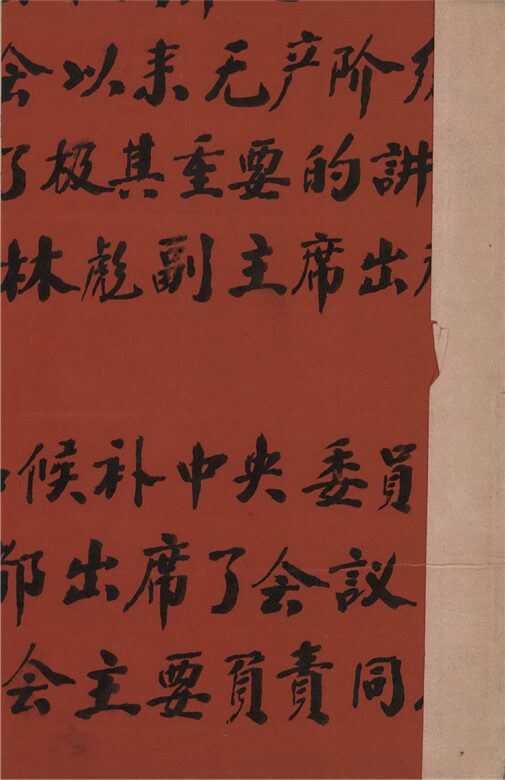 会以来无产阶级
了极其重要的讲
林彪副主席出席
候补中央委員
部出席了会议
会主要負責同